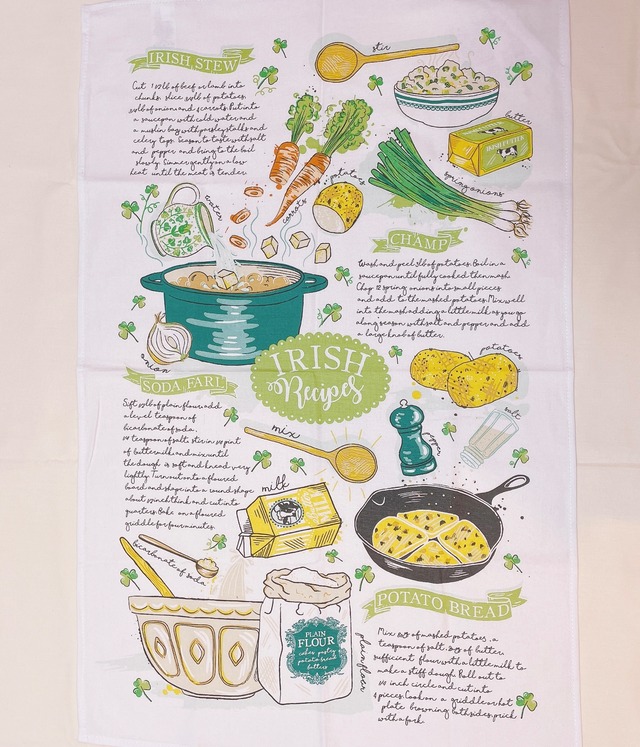 IRISH STEW
Cut 1 1/2lb of beef or lamb into
chunks. slice 3/4lb of potatoes,
3/4lb of onion and 4 carrots. Put into
a saucepan with cold water and
a muslin bag with parsley stalks and
celery tops. Season to taste with salt
and pepper and bring to the boil
slowly. Simmer gently on a low
heat until the meat is tender.
stir
butter
IRISH BUTTER
spring onions
potatoes
carrots
water
onion
CHAMP
Wash and peel 3lb of potatoes. Boil in a
saucepan until fully cooked then mash.
Chop 12 spring onions into small pieces
and add to the mashed potatoes. Mix well
into the mash adding a little milk as you go
along season with salt and pepper and add
a large knob of butter.
IRISH
Recipes
SODA FARL
Sift 1/2lb of plain flour, add
a level teaspoon of
bicarbonate of soda,
1/4 teaspoon of salt. stir in 1/4 pint
of buttermilk and mix until
the dough is soft and knead very
lightly. Turn out onto a floured
board and shape into a round shape
about 1/2 inch thick and cut into
quarters. Bake on a floured
griddle for four minutes.
potatoes
salt
pepper
mix
milk
bicarbonate of soda
PLAIN
FLOUR
cakes, pastry
potato bread
batters
plain flour
POTATO BREAD
Mix 8oz of mashed potatoes, a
teaspoon of salt, of butter
sufficient flour with a little milk to
make a stiff dough. Roll out to
1/4 inch circle and cut into
4 pieces. Cook on a griddle or hot
plate browning both sides, prick
with a fork.